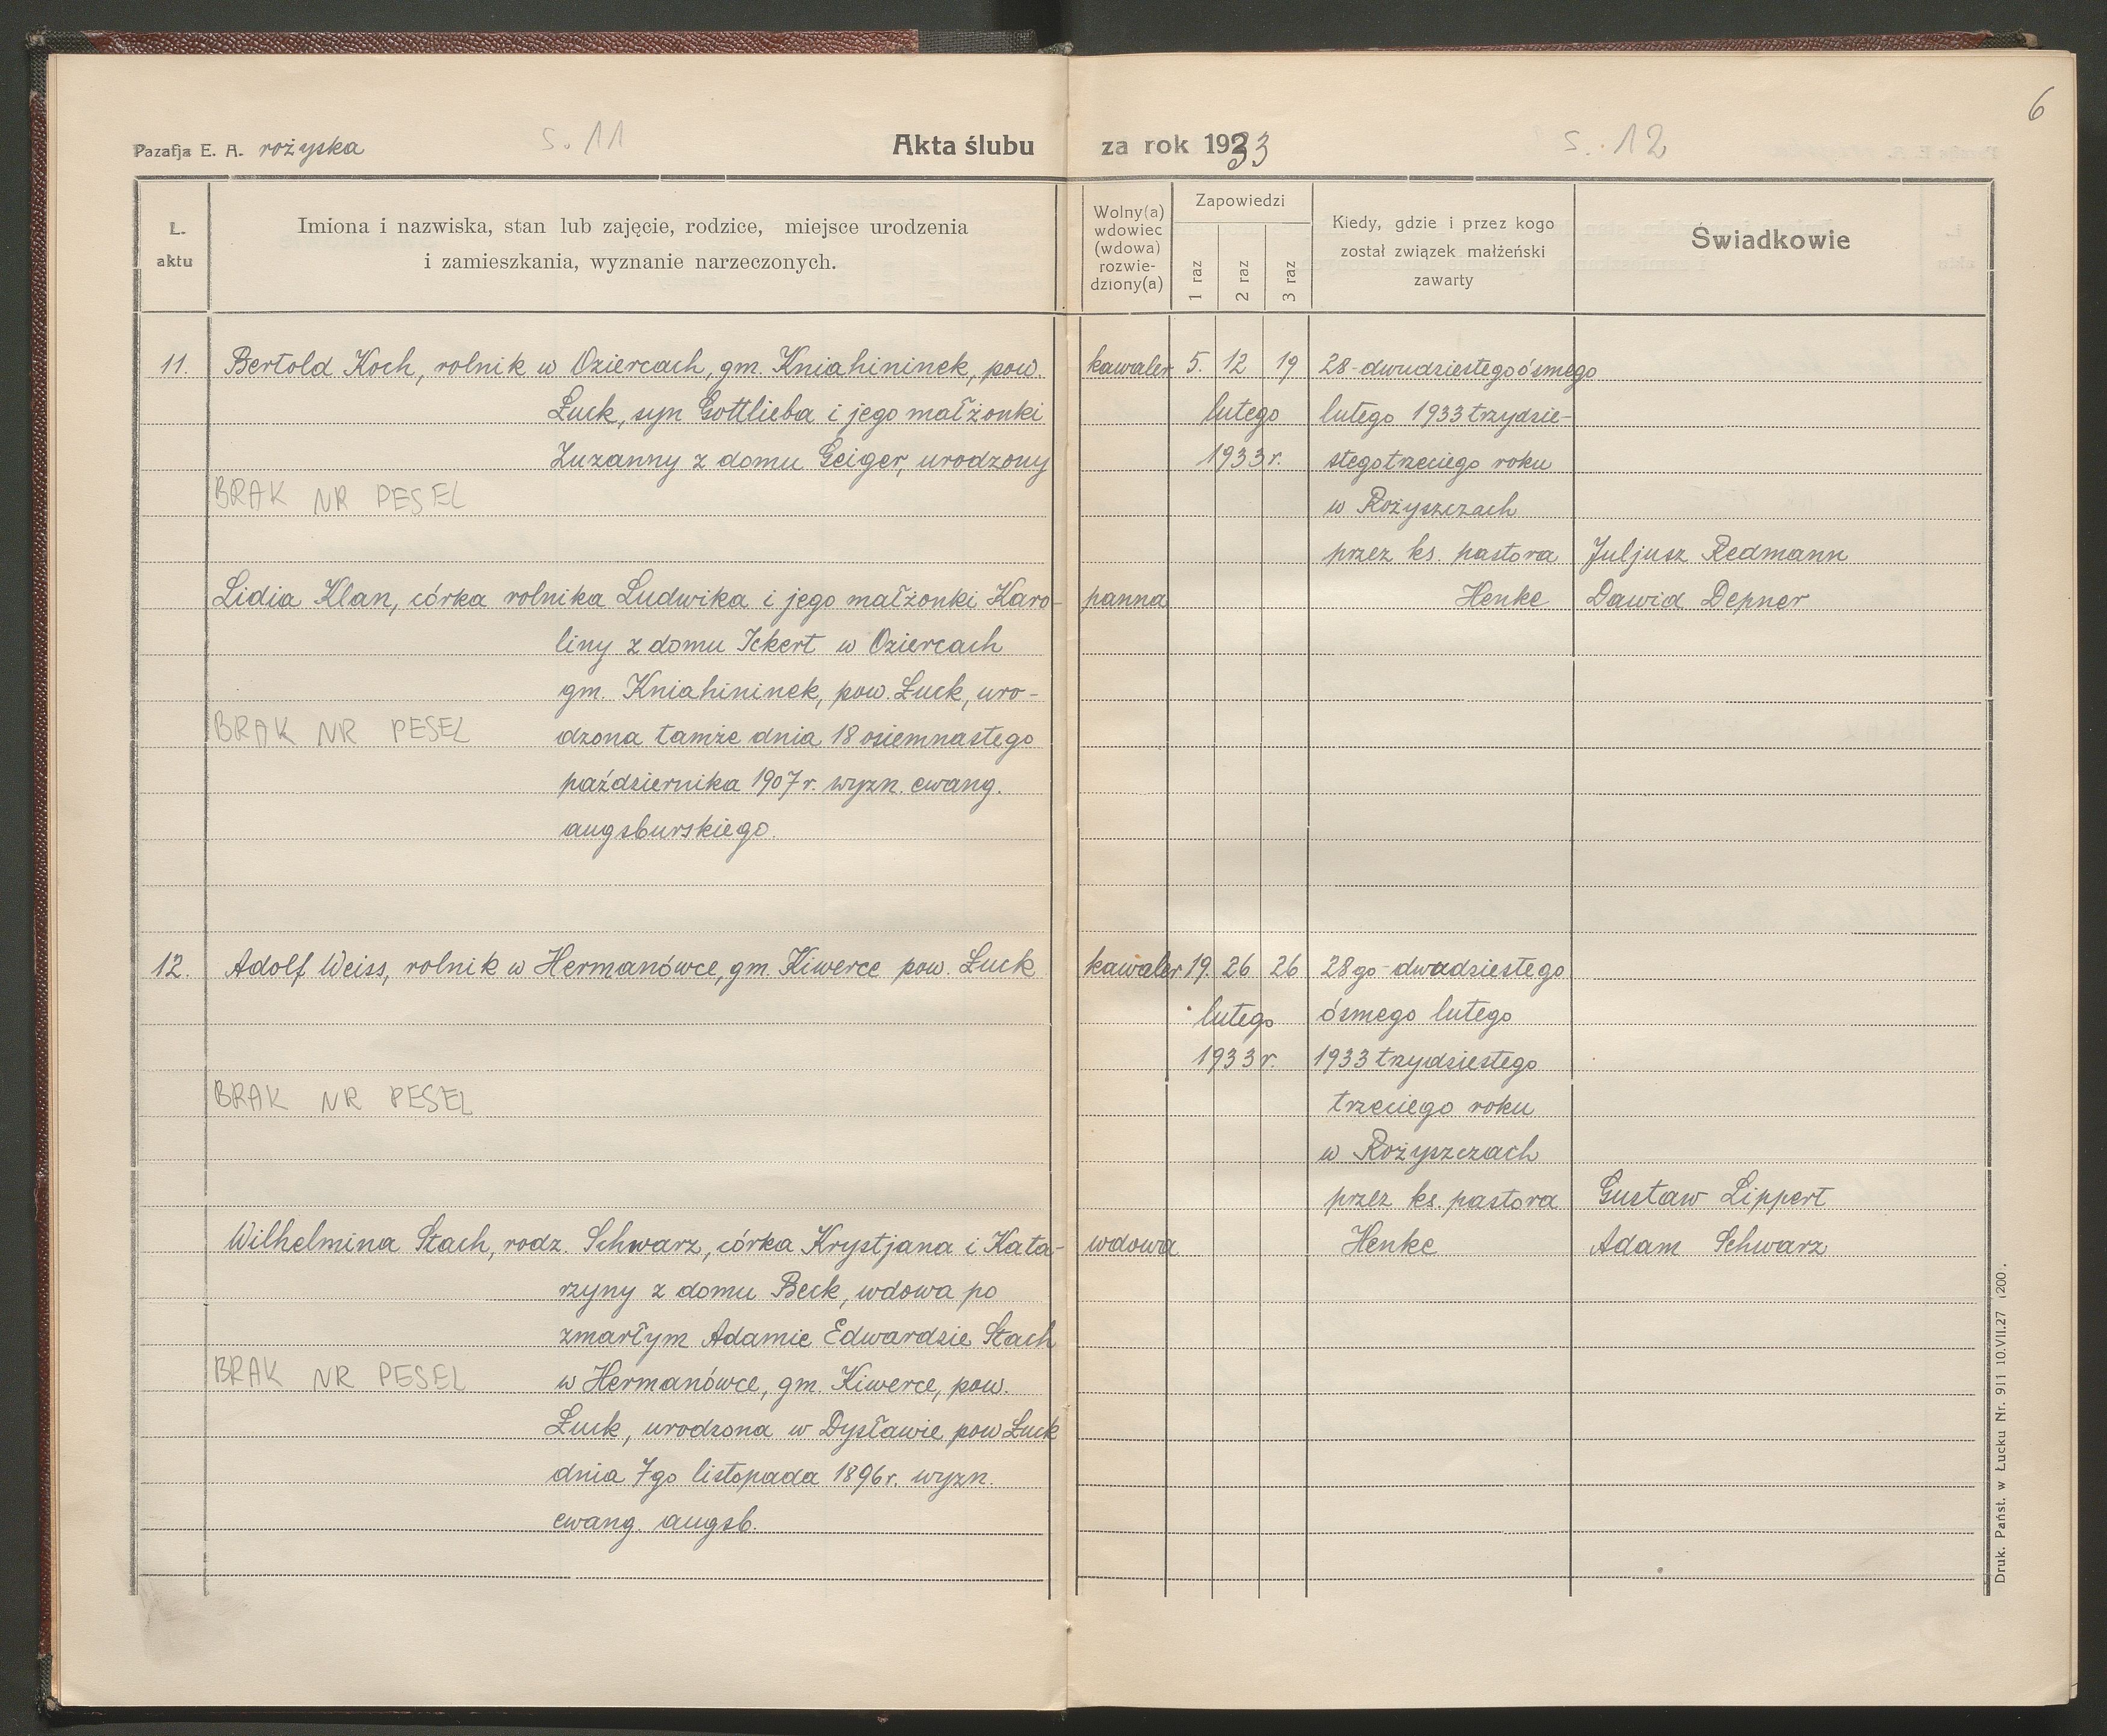 6
Parafja E. A. rożyska
s. 11
Akta ślubu
za rok 1933
s. 12
L. aktu
Imiona i nazwiska, stan lub zajęcie, rodzice, miejsce urodzenia
i zamieszkania, wyznanie narzeczonych.
Wolny(a)
wdowiec
(wdowa)
rozwie-
dziony(a)
Zapowiedzi
1 raz
2 raz
3 raz
Kiedy, gdzie i przez kogo
został związek małżeński
zawarty
Świadkowie
11. Bertold Koch, rolnik w Oziercach, gm. Kniahininek, pow.
Łuck, syn Gottlieba i jego małżonki
Zuzanny z domu Geiger, urodzony
BRAK NR PESEL
Lidia Klan, córka rolnika Ludwika i jego małżonki Karo-
liny z domu Ickert w Oziercach
gm. Kniahininek, pow. Łuck, uro-
BRAK NR PESEL
dzona tamże dnia 18 osiemnastego
października 1907 r. wyzn. ewang.
augsburskiego.
kawaler
panna
5. 12 19
lutego
1933 r.
28-dwudziestegoósmego
lutego 1933 trzydzie-
stegotrzeciego roku
w Rożyszczach
przez ks. pastora
Henke
Juljusz Redmann
Dawid Depner
12. Adolf Weiss, rolnik w Hermanówce, gm. Kiwerce pow. Łuck
BRAK NR PESEL
Wilhelmina Stach, rodz. Schwarz, córka Krystjana i Kata-
rzyny z domu Beck, wdowa po
zmarłym Adamie Edwardzie Stach
BRAK NR PESEL
w Hermanówce, gm. Kiwerce, pow.
Łuck, urodzona w Dysławie pow Łuck
dnia 7go listopada 1896 r. wyzn.
ewang. augsb.
kawaler
wdowa
19. 26 26
lutego
1933 r.
28go-dwudziestego
ósmego lutego
1933 trzydziestego
trzeciego roku
w Rożyszczach
przez ks. pastora
Henke
Gustaw Lippert
Adam Schwarz
Druk. Państ. w Łucku Nr. 911 10.VII.27 1200.